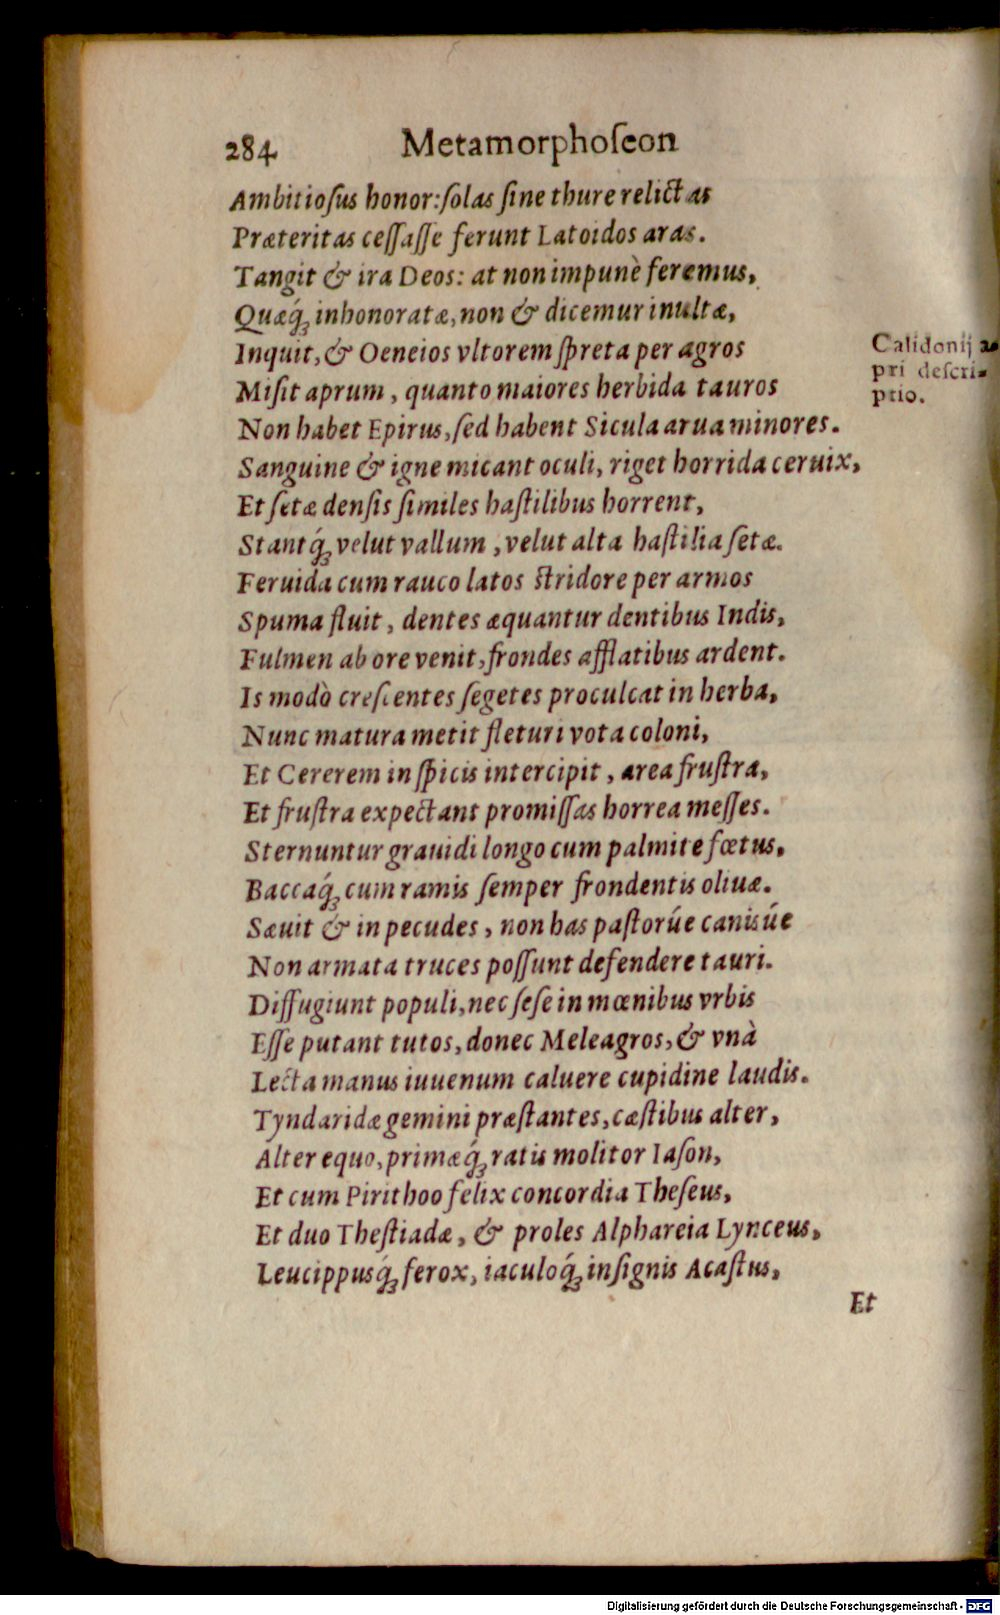 284 Metamorphoſeon
Ambitioſus honor: ſolas ſine thure relictas
Præteritas ceſſaſſe ferunt Latoidos aras.
Tangit & ira Deos: at non impunè feremus,
Quæq́ꝫ inhonoratæ, non & dicemur inultæ,
Inquit, & Oeneios vltorem ſpreta per agros
Miſit aprum, quanto maiores herbida tauros
Non habet Epirus, ſed habent Sicula arua minores.
Sanguine & igne micant oculi, riget horrida ceruix,
Et ſetæ denſis ſimiles haſtilibus horrent,
Stantq́ꝫ velut vallum, velut alta haſtilia ſetæ.
Feruida cum rauco latos ſtridore per armos
Spuma fluit, dentes æquantur dentibus Indis,
Fulmen ab ore venit, frondes afflatibus ardent.
Is modò creſcentes ſegetes proculcat in herba,
Nunc matura metit fleturi vota coloni,
Et Cererem in ſpicis intercipit, area fruſtra,
Et fruſtra expectant promiſſas horrea meſſes.
Sternuntur grauidi longo cum palmite fœtus,
Baccaq́ꝫ cum ramis ſemper frondentis oliuæ.
Sæuit & in pecudes, non has paſtorúe canisúe
Non armata truces poſſunt defendere tauri.
Diffugiunt populi, nec ſeſe in mœnibus vrbis
Eſſe putant tutos, donec Meleagros, & vnà
Lecta manus iuuenum caluere cupidine laudis.
Tyndaridæ gemini præſtantes, cæſtibus alter,
Alter equo, primæq́ꝫ ratis molitor Iaſon,
Et cum Pirithoo felix concordia Theſeus,
Et duo Theſtiadæ, & proles Alphareia Lynceus,
Leucippusq́ꝫ ferox, iaculoq́ꝫ inſignis Acaſtus,
Et
Calidonij a-
pri deſcri-
ptio.
Digitalisierung gefördert durch die Deutsche Forschungsgemeinschaft - DFG